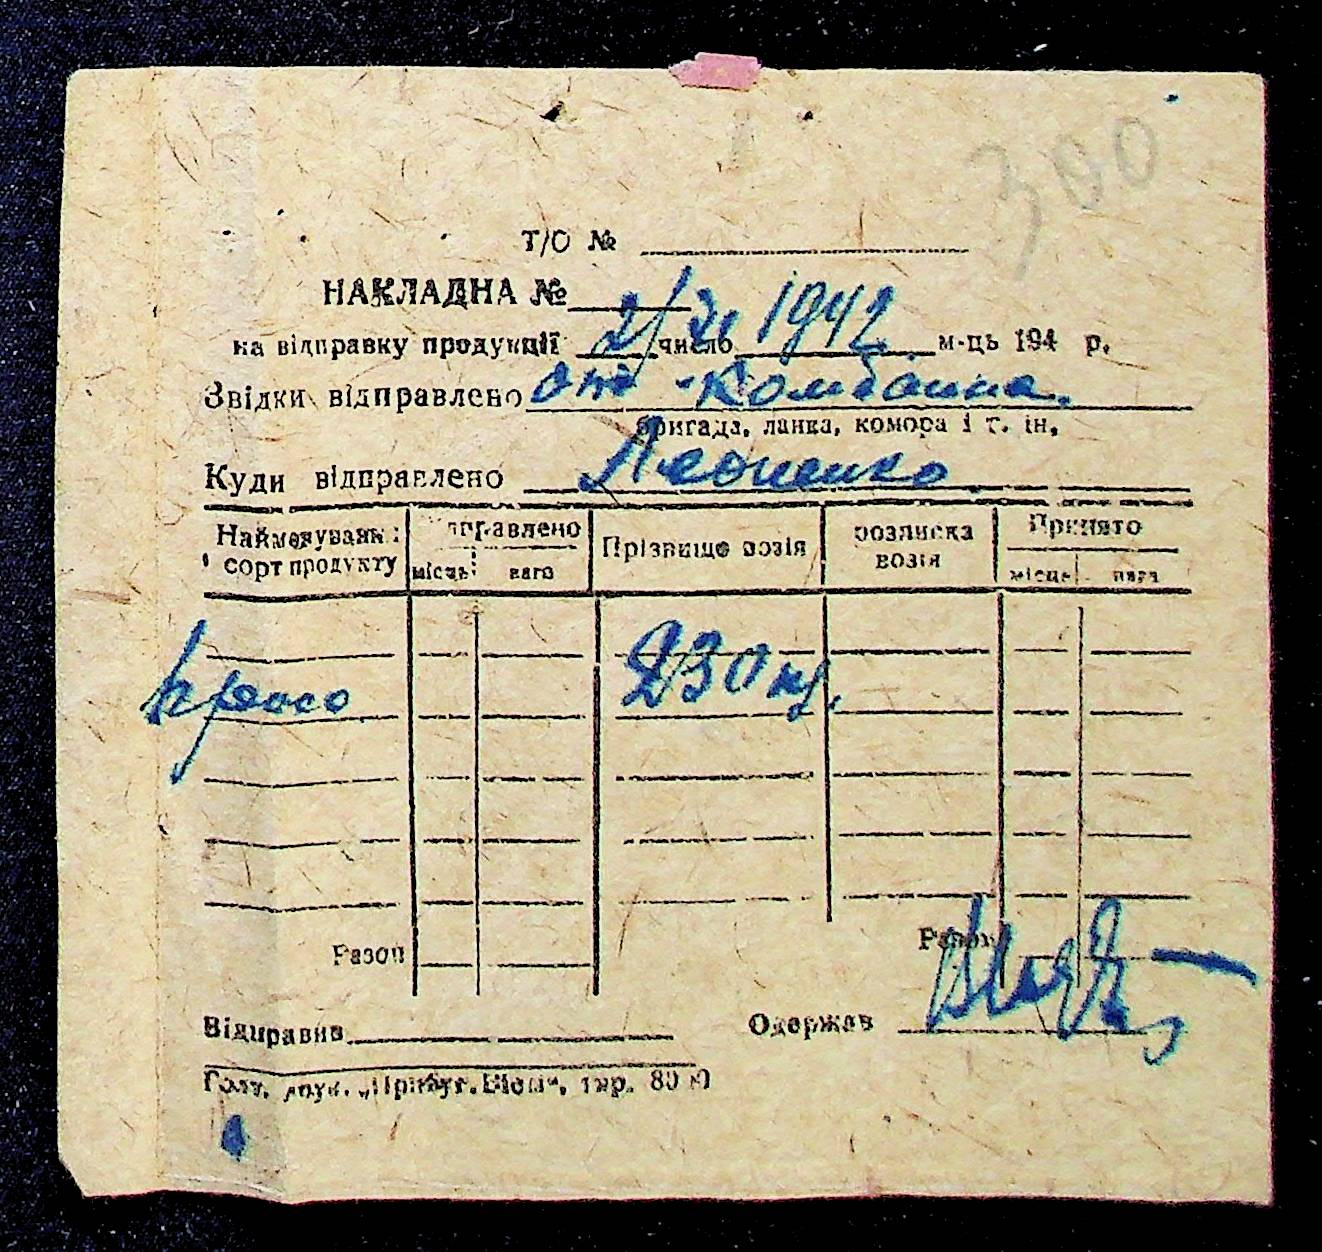 300
Т/О №
НАКЛАДНА №
на відправку продукції 2/XI число 1942 м-ць 194 р.
Звідки відправлено от Комбайна.
бригада, ланка, комора і т. ін,
Куди відправлено Леоненко
Найменування і сорт продукту Відправлено місць вага Прізвище возія розписка возія Принято місць вага
просо 230 кг.
Разом Разом
Відправив Одержав
Голт. друк. „Прибуг. Вісті“, тир. 80